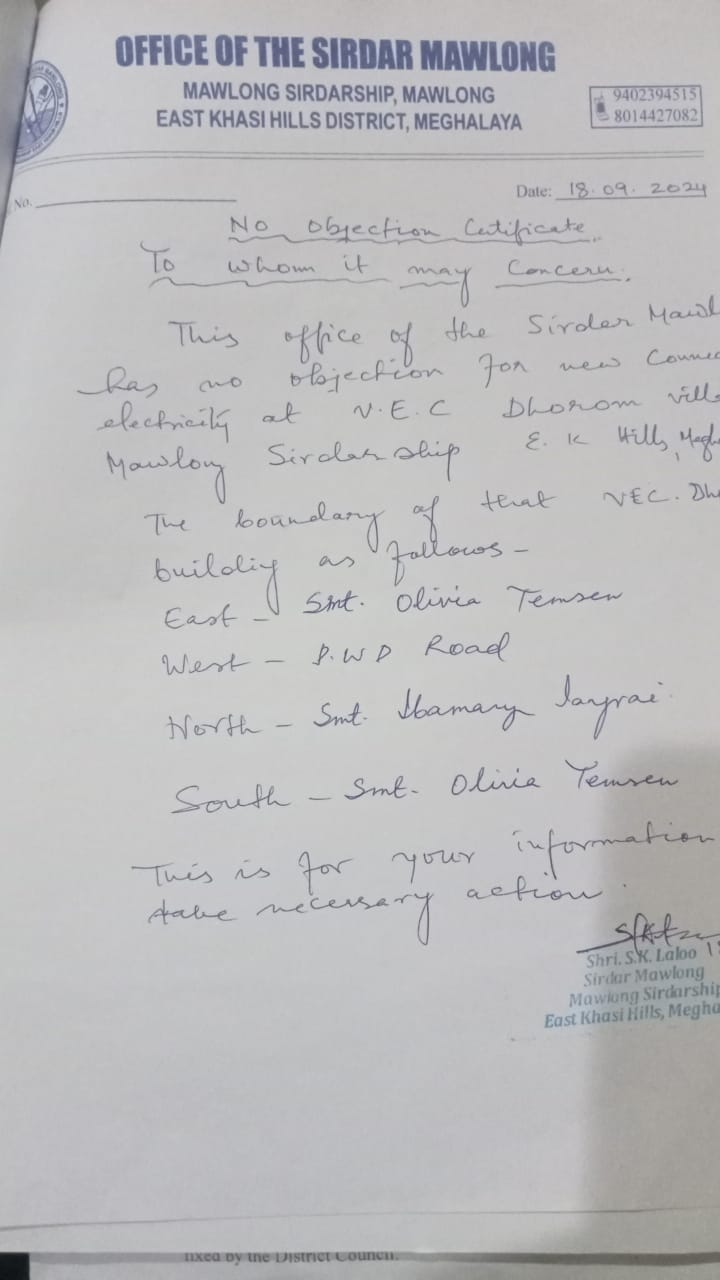 OFFICE OF THE SIRDAR MAWLONG
MAWLONG SIRDARSHIP, MAWLONG
EAST KHASI HILLS DISTRICT, MEGHALAYA
9402394515
8014427082
No.
Date: 18.09.2024
No Objection Certificate
To whom it may Concern.
This office of the Sirdar Mawl
has no objection for new Connec
electricity at V.E.C Dhorom vill
Mawlong Sirdarship E. K Hills, Megh
The boundary of that VEC. Dh
building as follows -
East - Smt. Olivia Temsen
West - P.W.D Road
North - Smt. Ibamary Iangrai
South - Smt. Olivia Temsen
This is for your information
take necessary action.
Shri. S.K. Laloo
Sirdar Mawlong
Mawlong Sirdarship
East Khasi Hills, Megha
fixed by the District Council.